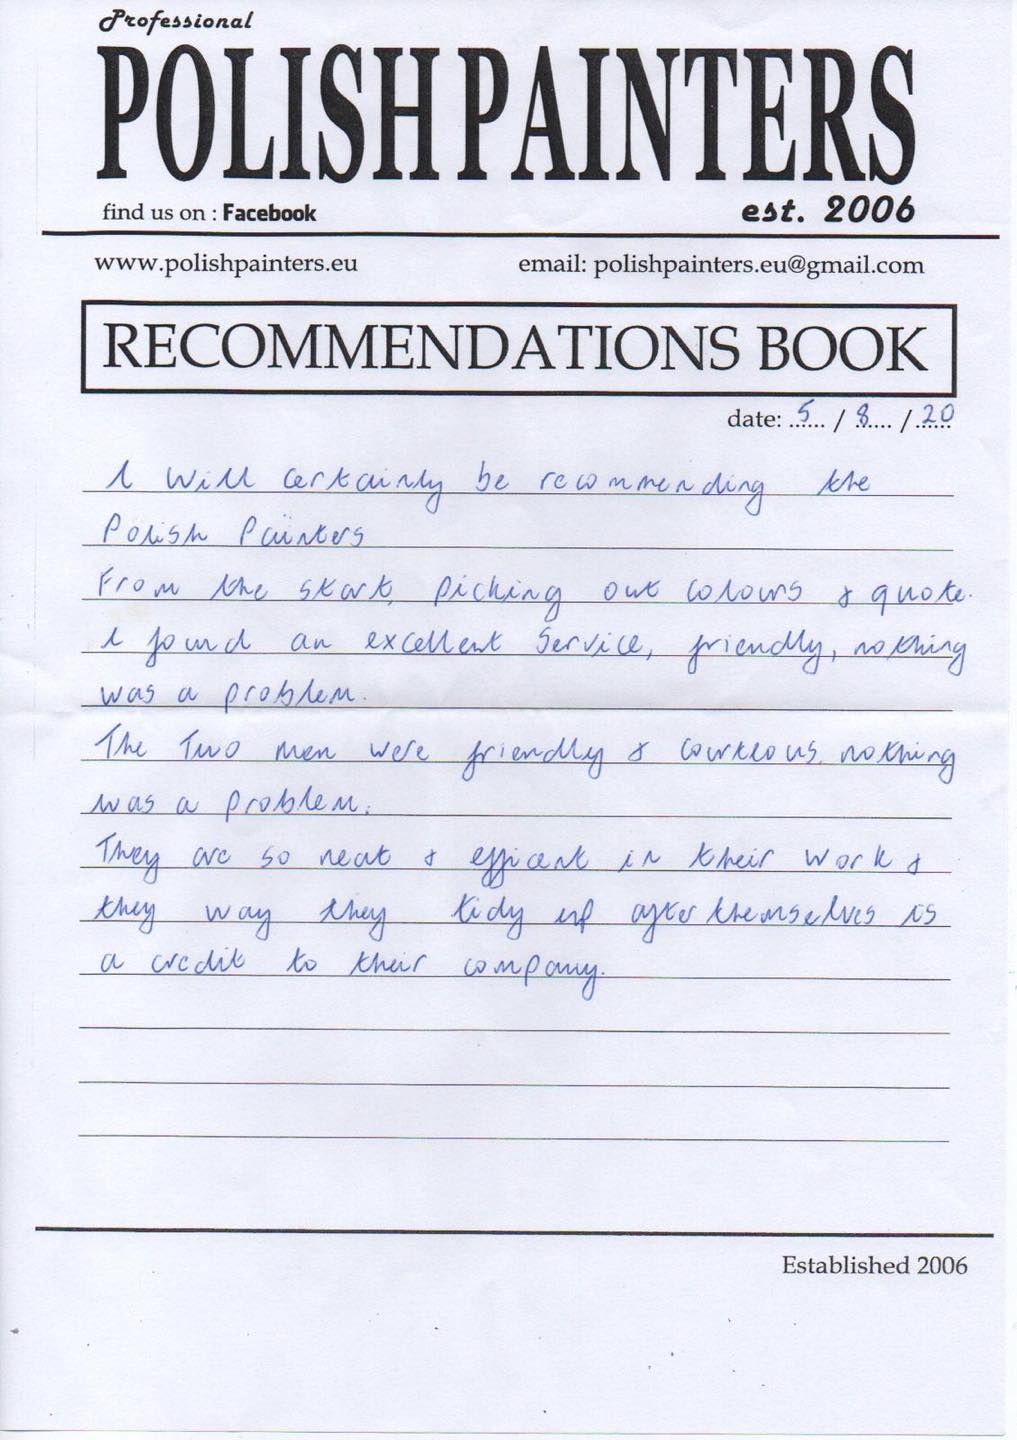 Professional
POLISH PAINTERS
find us on : Facebook
est. 2006
www.polishpainters.eu
email: polishpainters.eu@gmail.com
RECOMMENDATIONS BOOK
date: 5 / 8 / 20
I will certainly be recommending the
Polish Painters
From the start, picking out colours & quote.
I found an excellent service, friendly, nothing
was a problem.
The Two men were friendly & courteous, nothing
was a problem.
They are so neat & efficent in their work &
they way they tidy up after themselves is
a credit to their company.
Established 2006